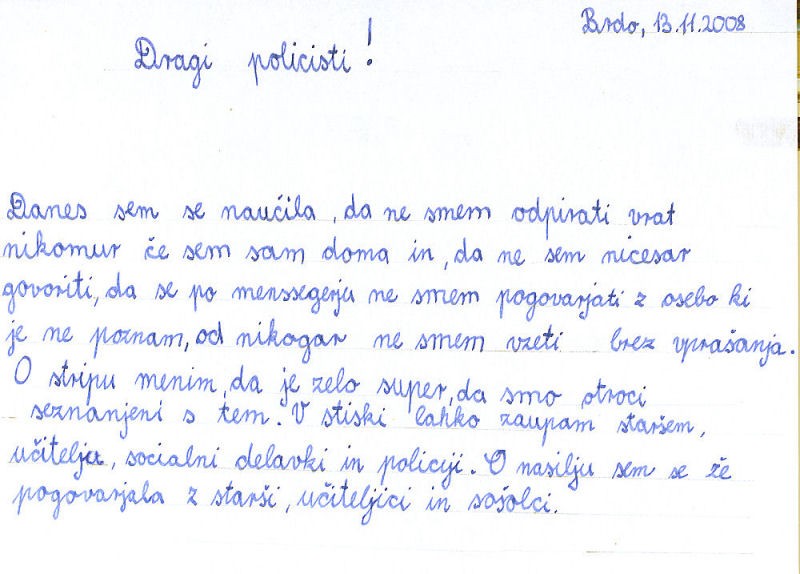 Brdo, 13.11.2008
Dragi policisti!
Danes sem se naučila, da ne smem odpirati vrat
nikomur če sem sam doma in, da ne sem ničesar
govoriti, da se po menssegerju ne smem pogovarjati z osebo ki
je ne poznam, od nikogar ne smem vzeti brez vprašanja.
O stripu menim, da je zelo super, da smo otroci
seznanjeni s tem. V stiski lahko zaupam staršem,
učitelju, socialni delavki in policiji. O nasilju sem se že
pogovarjala z starši, učiteljici in sošolci.